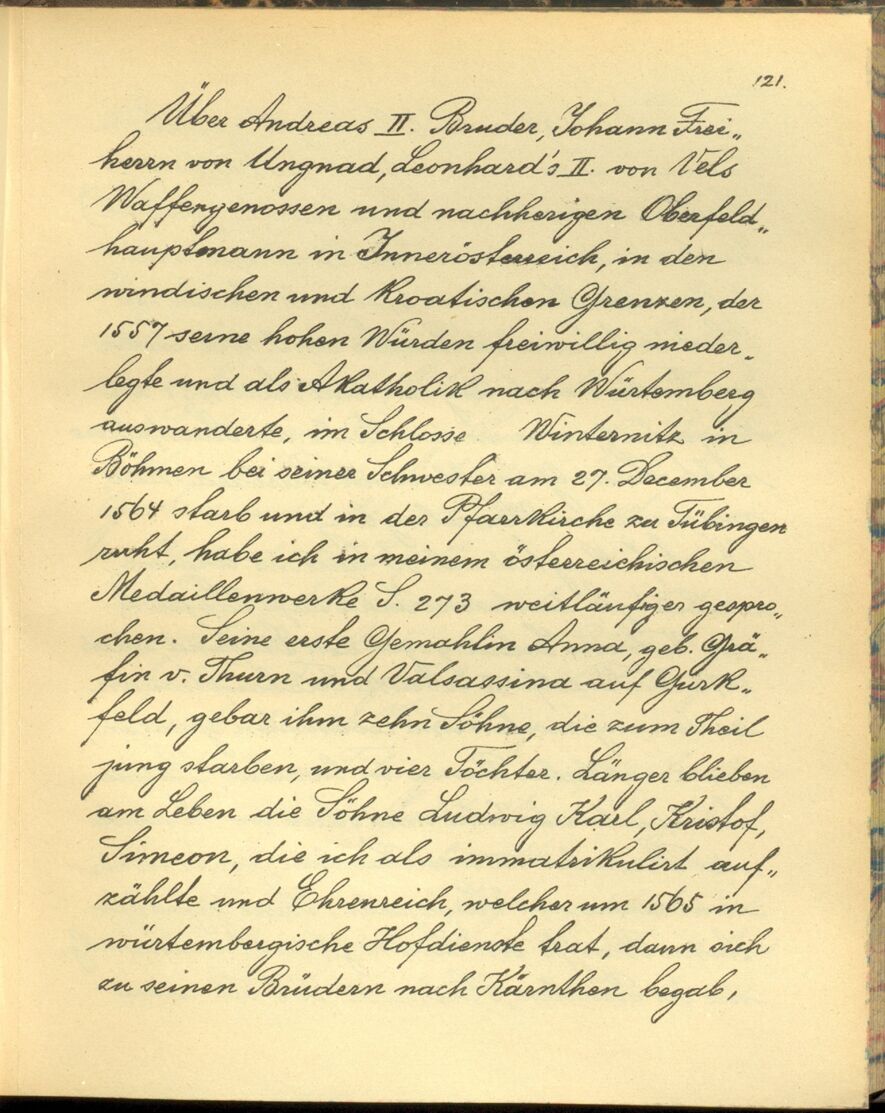 121.
Über Andreas II. Bruder, Johann Frei„
herrn von Ungnad, Leonhard's II. von Vels
Waffengenossen und nachherigen Oberfeld„
hauptmann in Innerösterreich, in den
windischen und kroatischen Grenzen, der
1557 seine hohen Würden freiwillig nieder„
legte und als Akatholik nach Würtemberg
auswanderte, im Schlosse Winternitz in
Böhmen bei seiner Schwester am 27. December
1564 starb und in der Pfarrkirche zu Tübingen
ruht, habe ich in meinem österreichischen
Medaillenwerke S. 273 weitläufiger gespro„
chen. Seine erste Gemahlin Anna, geb. Grä„
fin v. Thurn und Valsassina auf Gurk„
feld, gebar ihm zehn Söhne, die zum Theil
jung starben, und vier Töchter. Länger blieben
am Leben die Söhne Ludwig Karl, Kristof,
Simeon, die ich als immatrikulirt auf„
zählte und Ehrenreich, welcher um 1565 in
würtembergische Hofdienste trat, dann sich
zu seinen Brüdern nach Kärnthen begab,